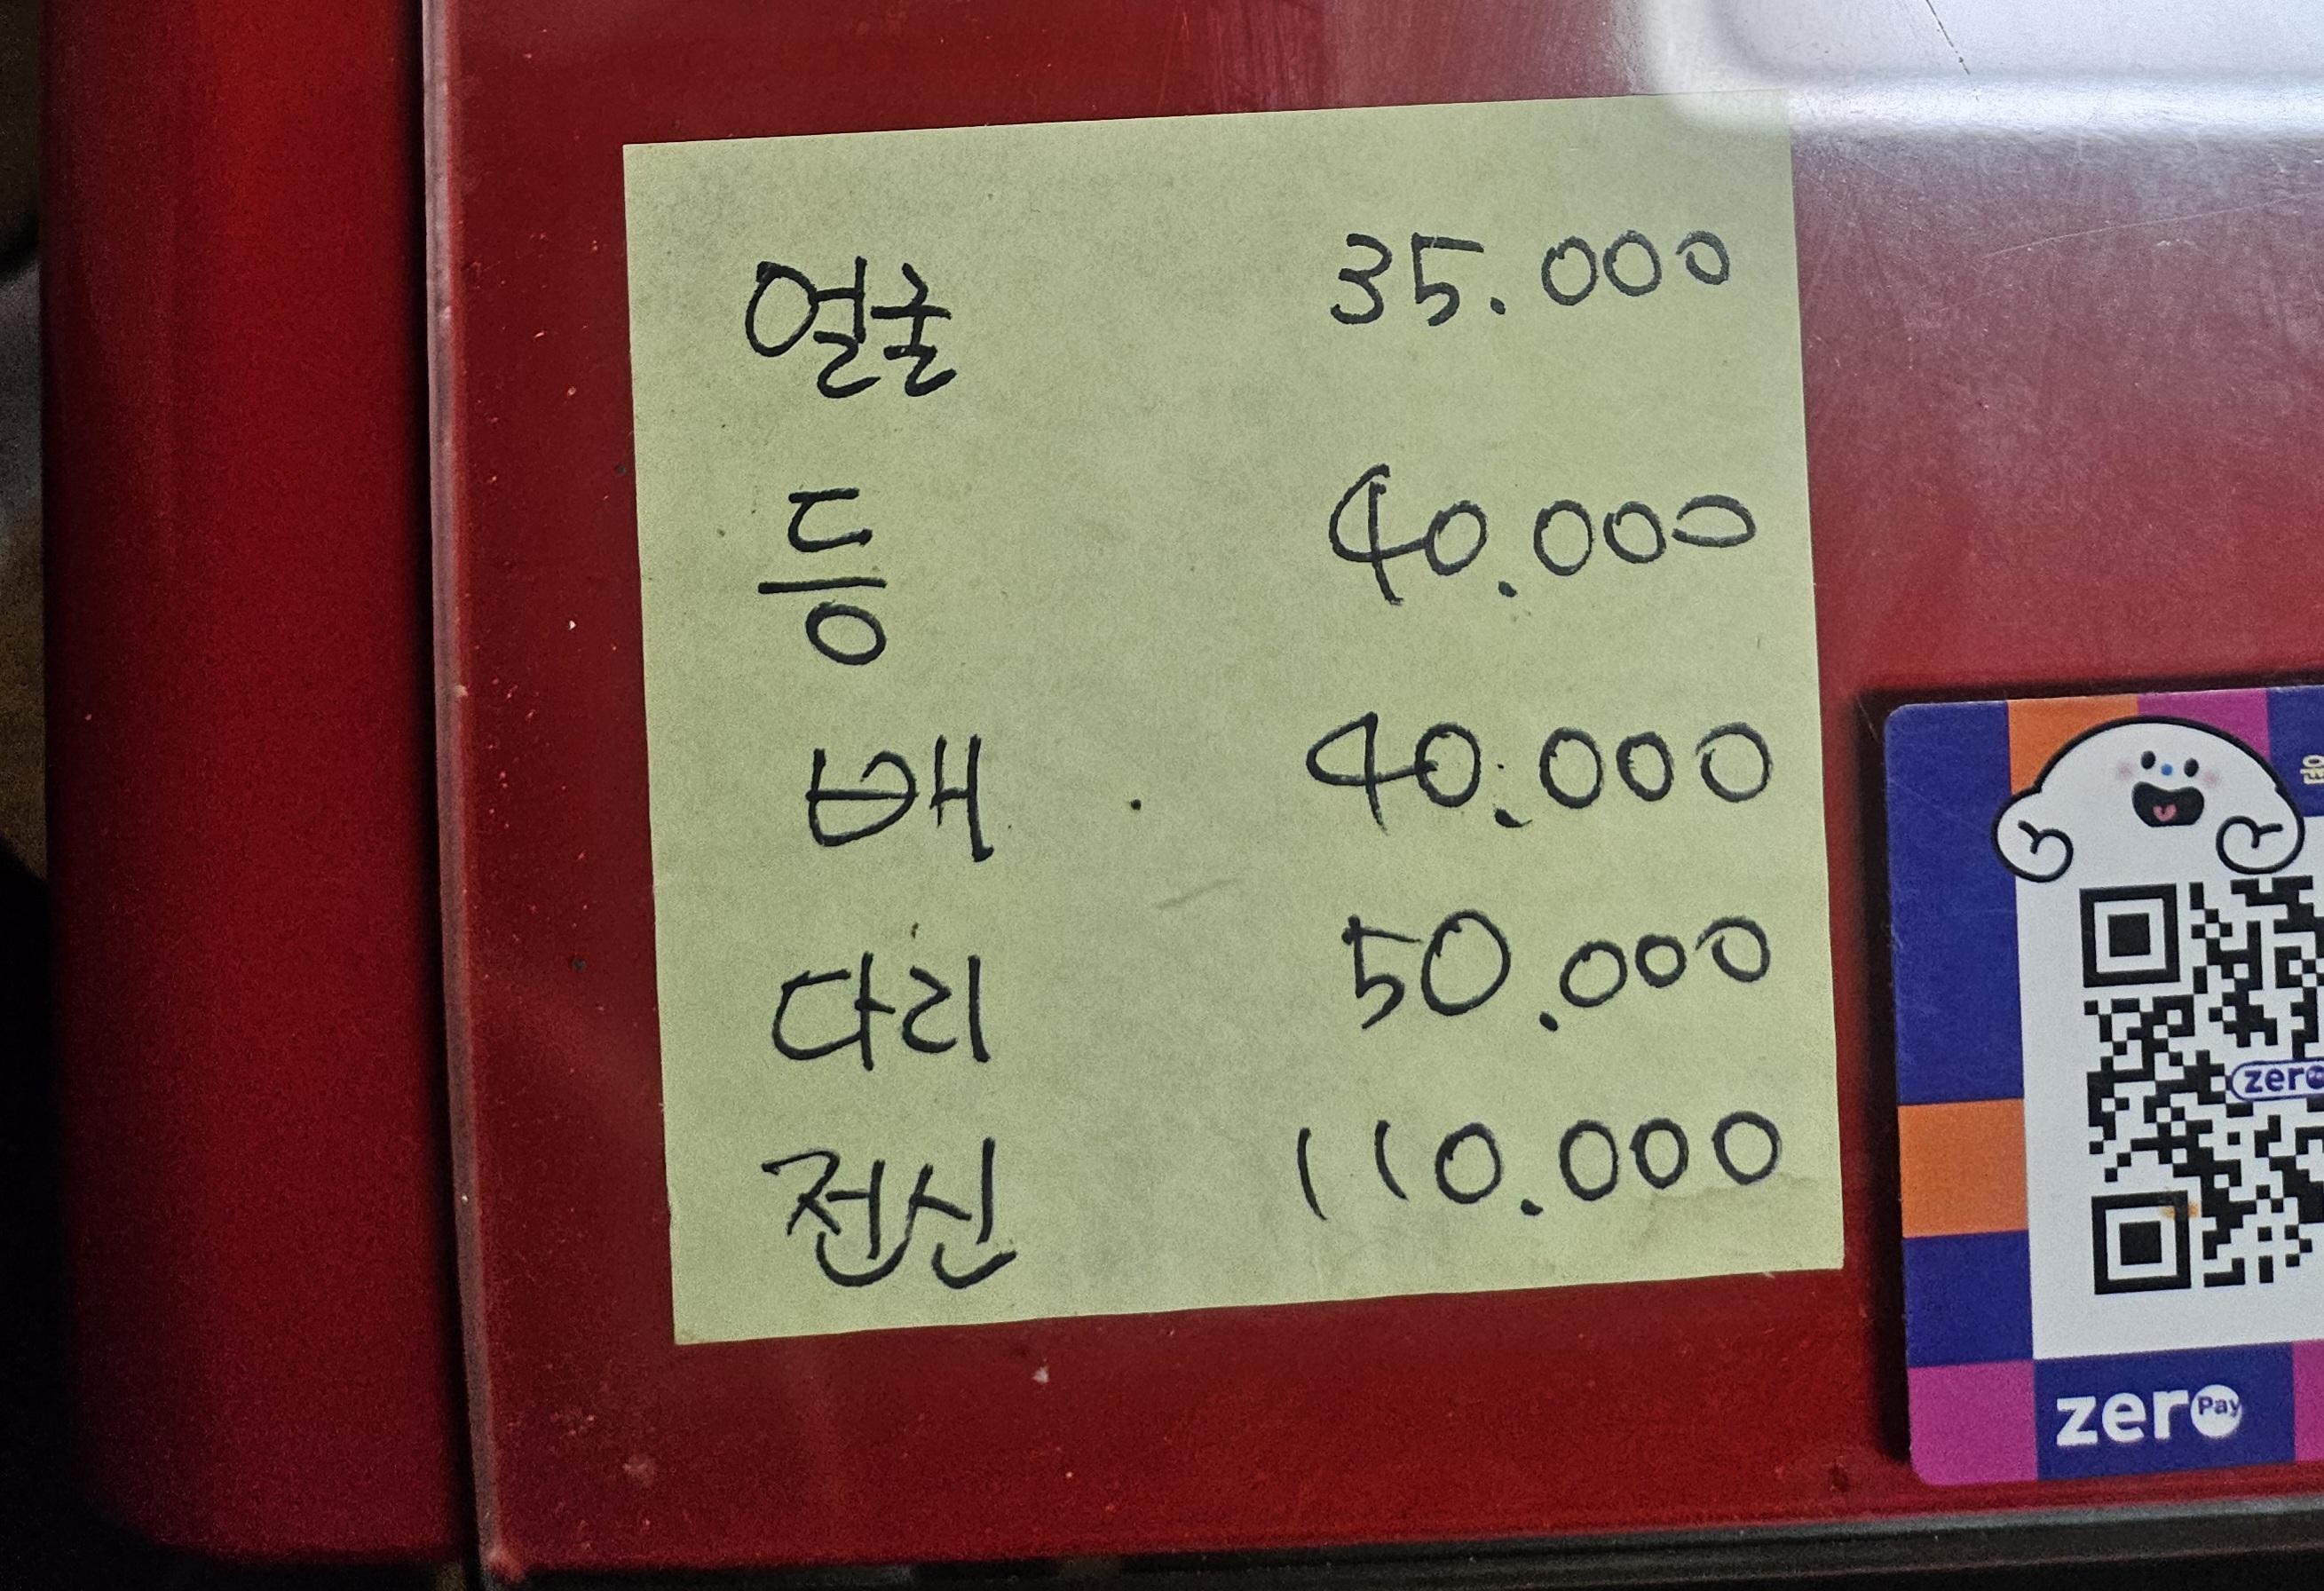 얼굴 35.000
등 40.000
배 40.000
다리 50.000
전신 110.000
zero
zero Pay